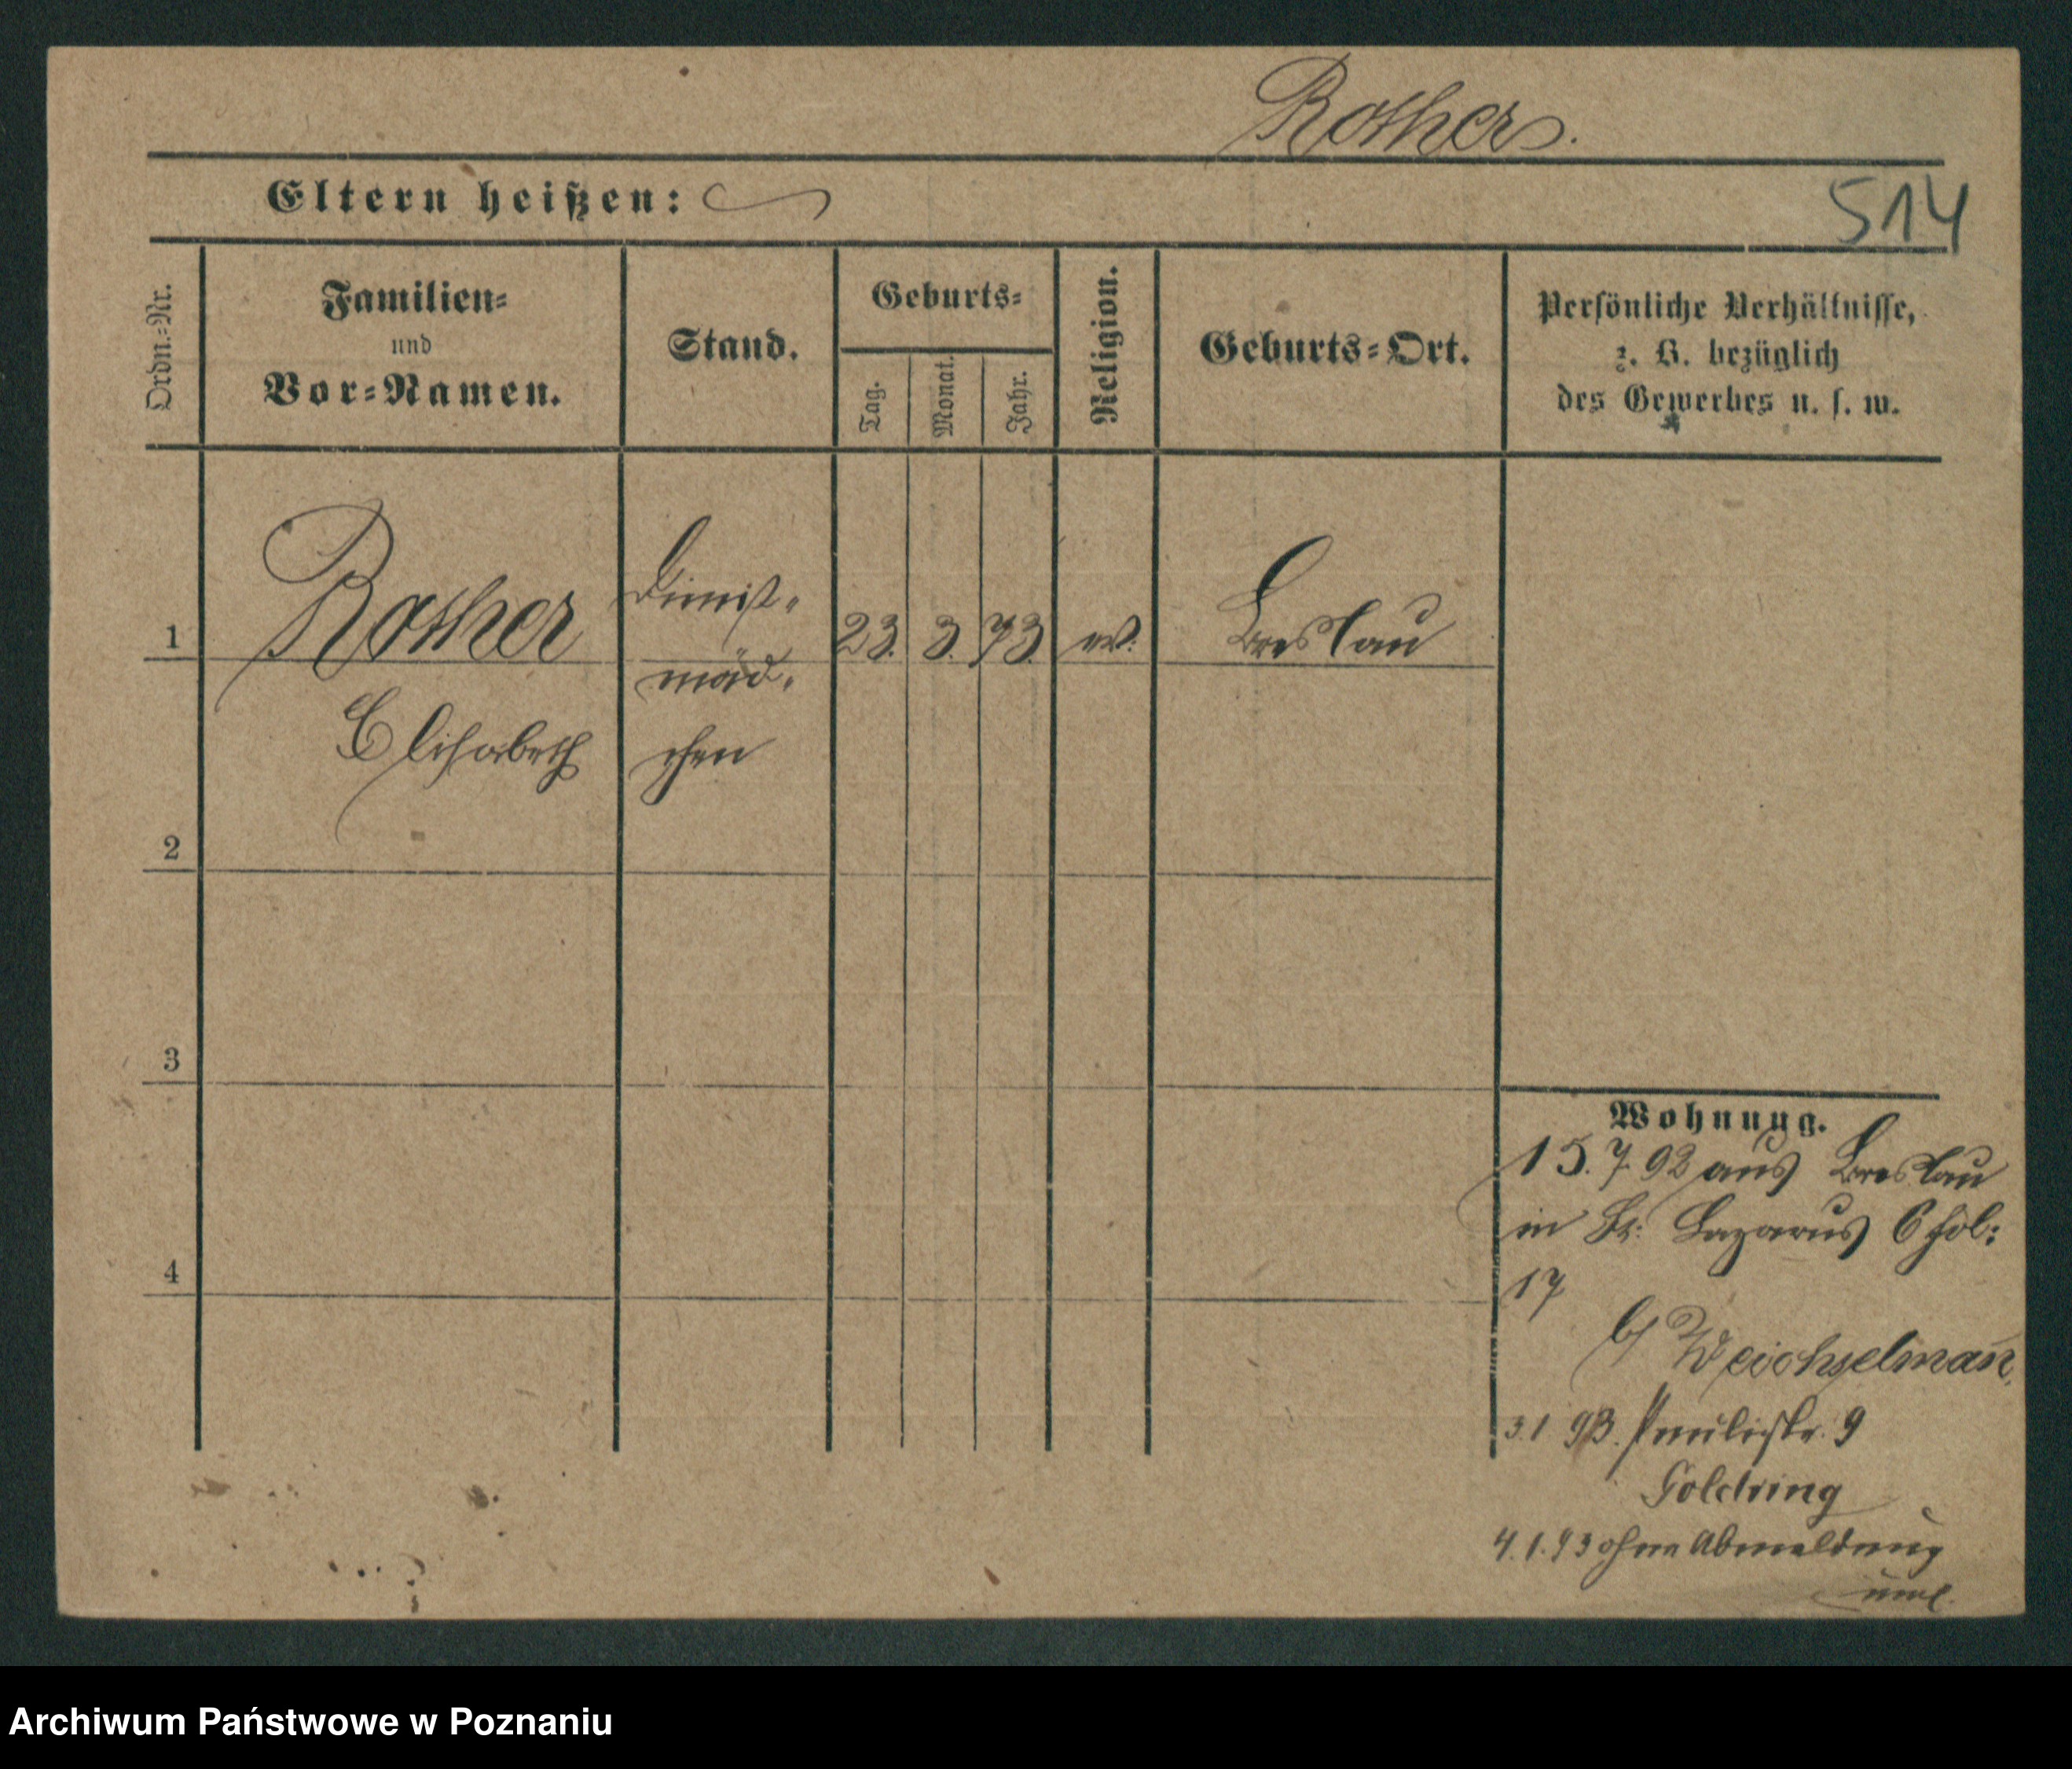 Rother.
Eltern heißen:
514
Ordn.=Nr.
Familien=
und
Vor=Namen.
Stand.
Geburts=
Tag.
Monat.
Jahr.
Religion.
Geburts=Ort.
Persönliche Verhältnisse,
z. B. bezüglich
des Gewerbes u. s. w.
1
Rother
Elisabeth
Dienst-
mäd-
chen
23. 3. 73.
ev.
Breslau
2
3
4
Wohnung.
15. 7. 92 aus Breslau
in St: Lazarus
17
b/ Weichselman̄
3. 1 93. Paulistr. 9
Goldring
4. 1. 93 ohne Abmeldung
Archiwum Państwowe w Poznaniu